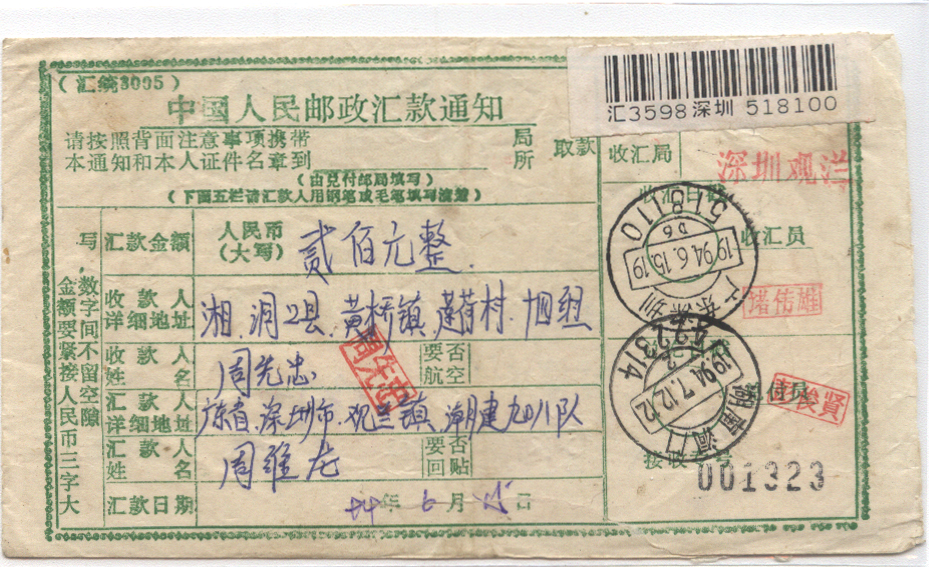 (汇统3005)
中国人民邮政汇款通知
汇3598深圳 518100
请按照背面注意事项携带
本通知和本人证件名章到
局
所
取款
(由兑付邮局填写)
(下面五栏请汇款人用钢笔或毛笔填写清楚)
收汇局
深圳观兰
收汇员
诸伟雄
518110
D6
1994.6.15.19
广东深圳
汇款金额
人民币
(大写)
贰佰元整.
收款人
详细地址
湘.洞口县.黄桥镇.莲荷村.四组
收款人
姓名
周先忠
周先忠
要否
航空
汇款人
详细地址
广东省.深圳市.观兰镇.湖建九〇八队
汇款人
姓名
周维龙
要否
回贴
汇款日期
94年6月15日
422314
1994.7.12.12
湖南洞口
俊贤
001323
写,数字间不留空隙
金额要紧接人民币三字大